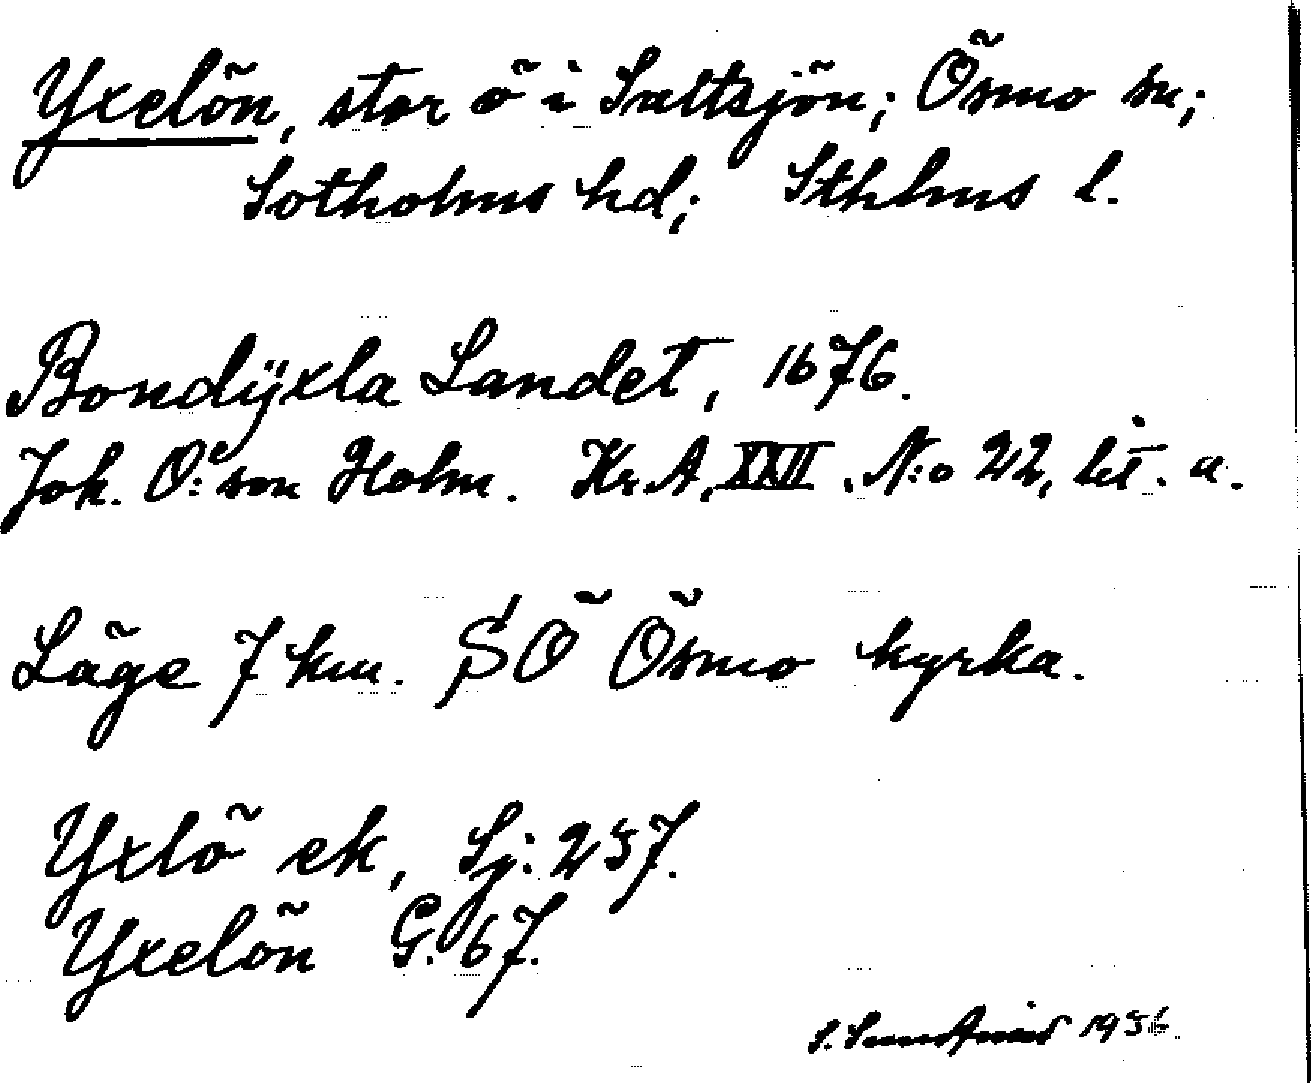 Yxelön, stor ö i Saltsjön; Ösmo sn;
Sotholms hd; Sthlms l.
Bondÿxla Landet, 1676.
Joh. O:son Holm. Kr.A. XXII. N:o 22, lit. a.
Läge 7 km. SÖ Ösmo kyrka.
Yxlö ek, Sj: 257.
Yxelön G. 67.
S. 1956.